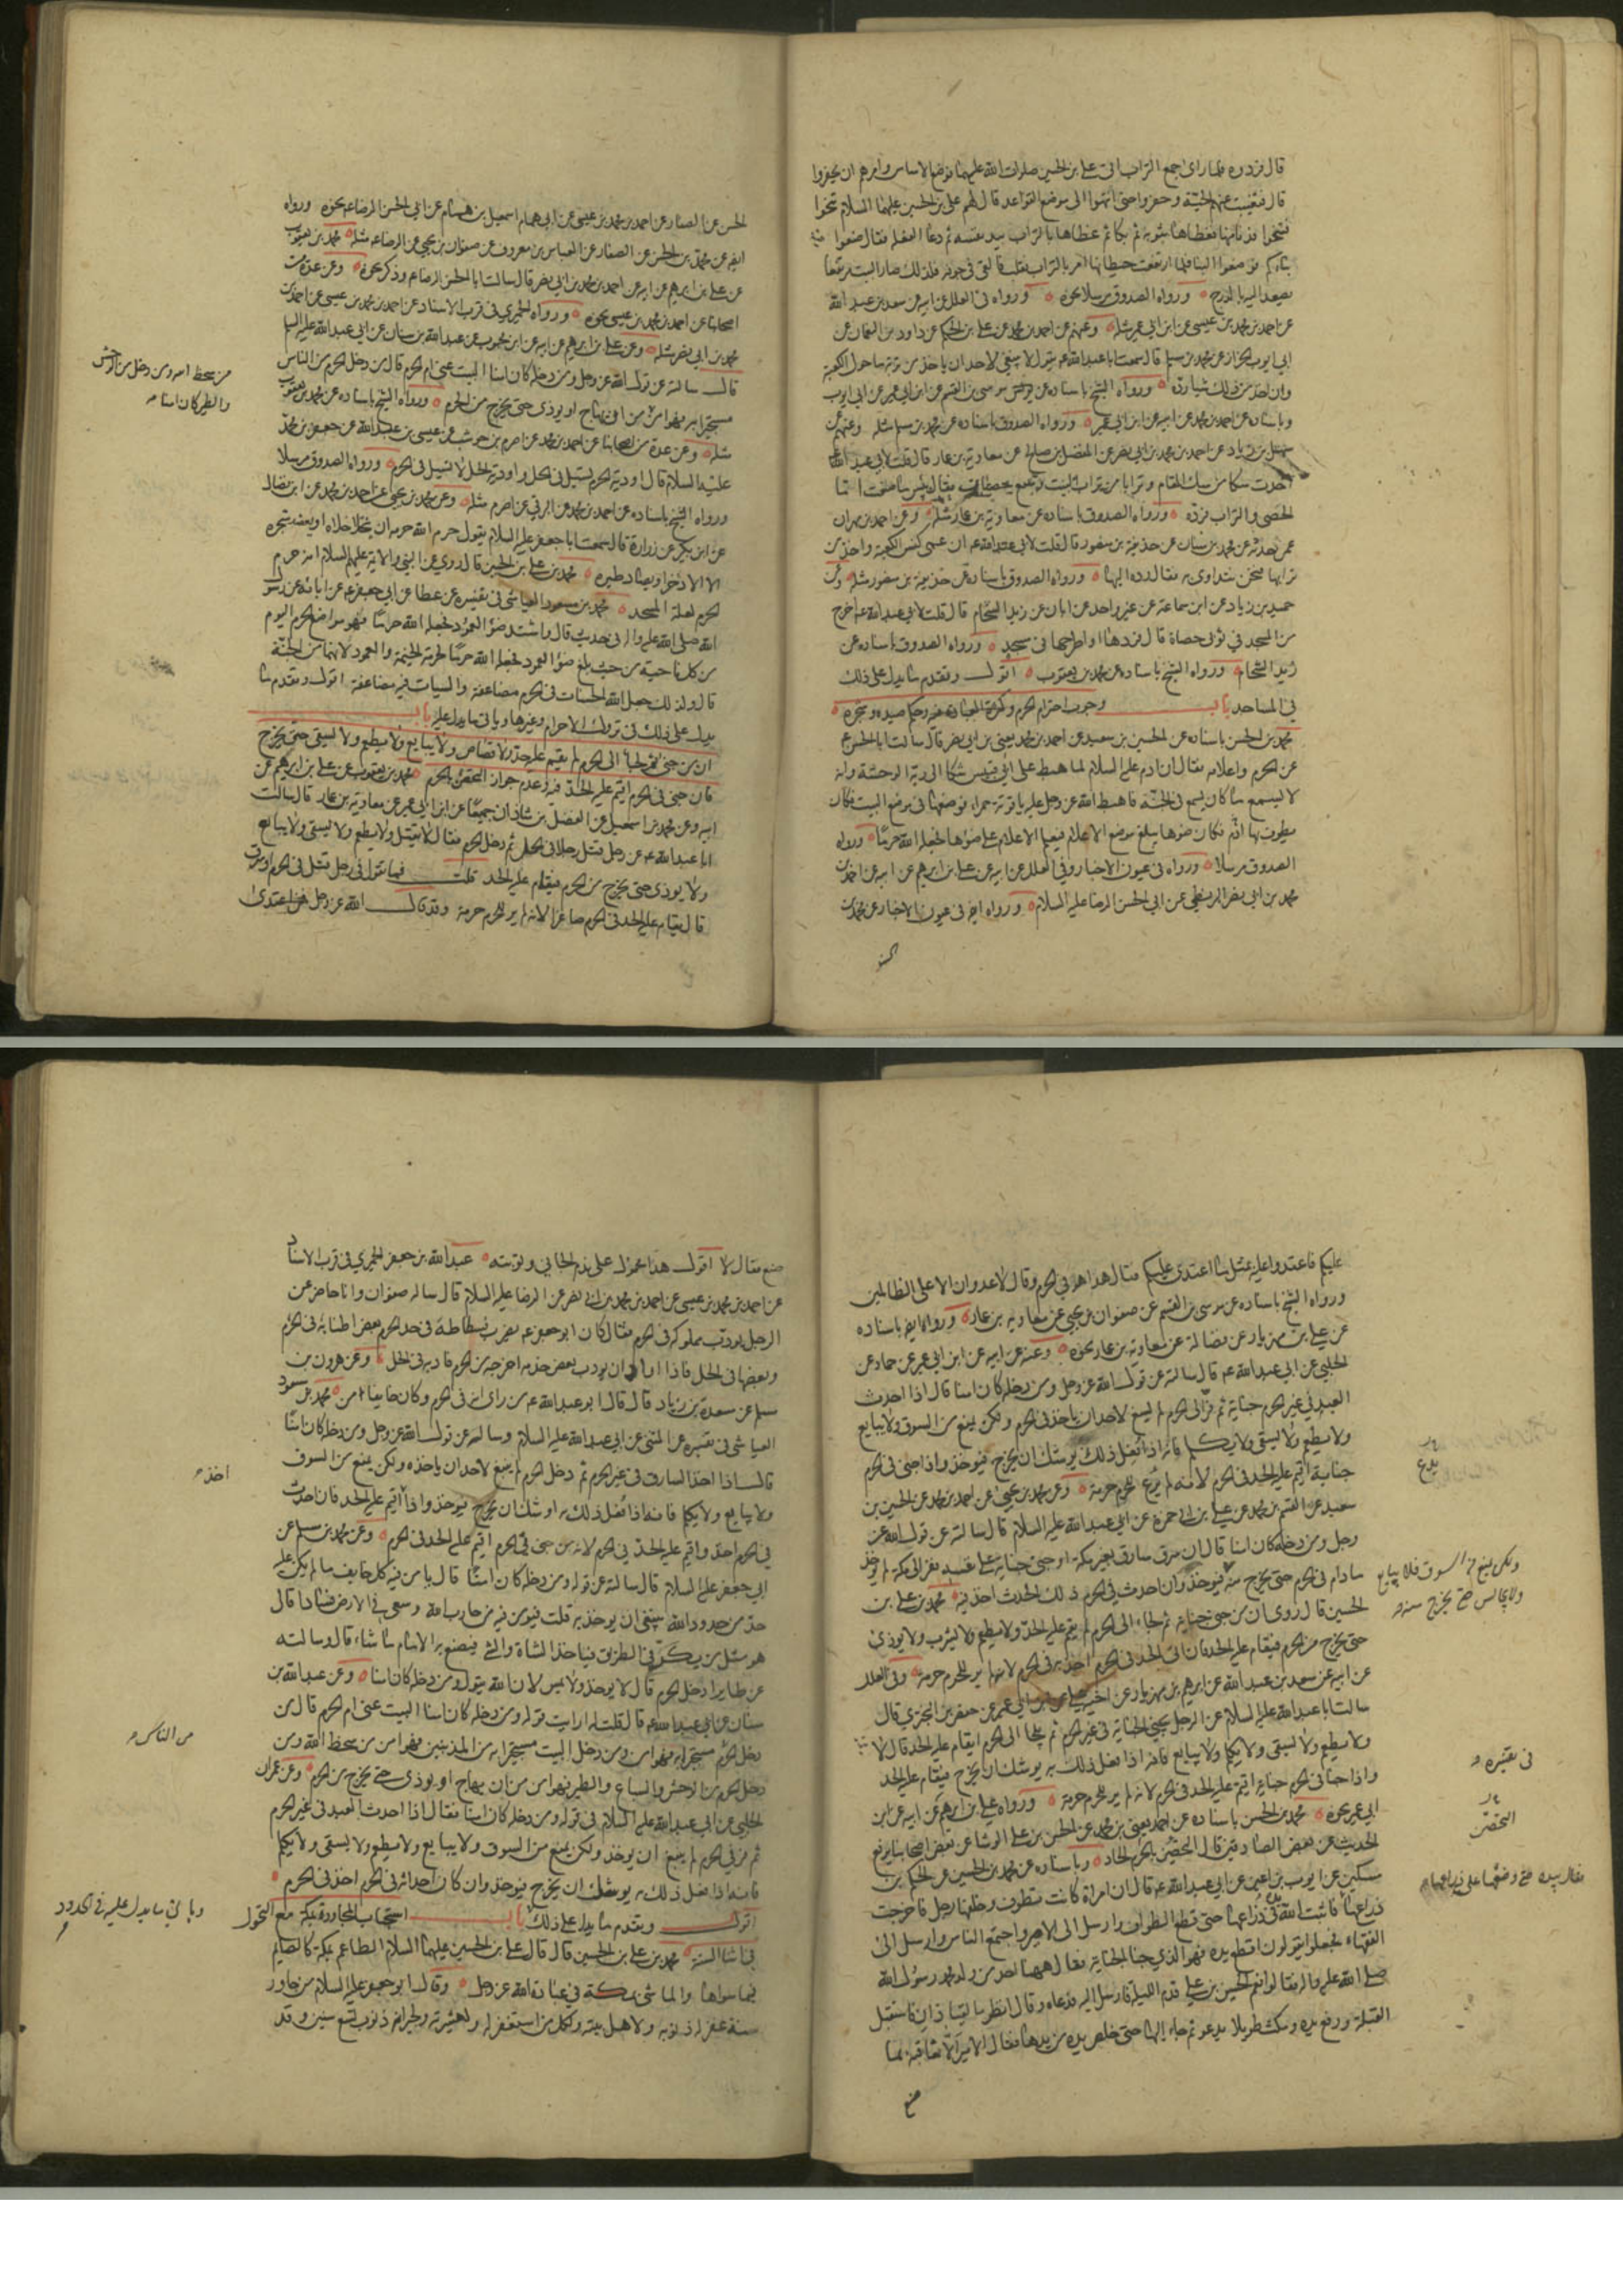 قال فردوه فلما راى جمع التراب اتى علي بن الحسين صلوات الله عليهما فوضع الاساس وامرهم ان يحفروا
قال فتغيبت عنهم الحية وحفروا حتى انتهوا الى موضع القواعد قال لهم علي بن الحسين عليهما السلام تنحوا
فتنحوا فدنا منها فغطاها بثوبه ثم بكا ثم غطاها بالتراب بيد نفسه ثم دعا الفعلة فقال ضعوا
بناءكم فوضعوا البنا فلما ارتفعت حيطانها امر بالتراب فقلب فالقى في جوفه فلذلك صار البيت مرتفعا
يصعد اليه بالدرج ورواه الصدوق مرسلا نحوه ورواه في العلل عن ابيه عن سعد بن عبد الله
عن احمد بن محمد بن عيسى عن ابن ابي عمير مثله وعنهم عن احمد بن محمد عن علي بن الحكم عن داود بن النعمان عن
ابي ايوب الخزاز عن محمد بن مسلم قال سمعت ابا عبد الله ع يقول لا ينبغي لاحد ان ياخذ من تربة ما حول الكعبة
وان اخذ من ذلك شيئا رده ورواه الشيخ باسناده عن موسى بن القسم عن ابن ابي عمير عن ابي ايوب
وباسناده عن احمد بن محمد عن ابيه عن ابن ابي عمير ورواه الصدوق باسناده عن محمد بن مسلم مثله وعنهم عن
سهل بن زياد عن احمد بن محمد بن ابي نصر عن المفضل بن صالح عن معاوية بن عمار قال قلت لابي عبد الله ع
اخذت سكا من سك المقام وترابا من تراب البيت وسبع حصيات فقال بئس ما صنعت اما
الحصى والتراب فرده ورواه الصدوق باسناده عن معاوية بن عمار مثله وعن احمد بن مهران
عمن حدثه عن محمد بن سنان عن حذيفة بن منصور قال قلت لابي عبد الله ع ان عمي كنس الكعبة واخذ من
ترابها فنحن نتداوى به فقال رده اليها ورواه الصدوق باسناده عن حذيفة بن منصور مثله وعن
حميد بن زياد عن ابن سماعة عن غير واحد عن ابان عن زيد الشحام قال قلت لابي عبد الله ع اخرج
من المسجد في ثوبي حصاة قال فردها او اطرحها في مسجد ورواه الصدوق باسناده عن
زيد الشحام ورواه الشيخ باسناده عن محمد بن يعقوب اقول وتقدم ما يدل على ذلك
في المساجد باب وجوب احترام الحرم وحكم صيده وشجره
محمد بن الحسن باسناده عن الحسين بن سعيد عن احمد بن محمد يعني بن ابي نصر قال سالت ابا الحسن ع
عن الحرم واعلامه فقال ان ادم عليه السلام لما هبط على ابي قبيس شكا الى ربه الوحشة وانه
لا يسمع ما كان يسمع في الجنة فاهبط الله عز وجل عليه ياقوتة حمراء فوضعها في موضع البيت فكان
يطوف بها ادم فكان ضوءها يبلغ موضع الاعلام فيعلم الاعلام على ضوءها فجعله الله حرما ورواه
الصدوق مرسلا ورواه في عيون الاخبار وفي العلل عن ابيه عن علي بن ابرهيم عن ابيه عن احمد بن
محمد بن ابي نصر البزنطي عن ابي الحسن الرضا عليه السلام ورواه ايضا في عيون الاخبار عن محمد بن
الحسن
الحسن عن الصفار عن احمد بن محمد بن عيسى عن ابي همام اسمعيل بن همام عن ابي الحسن الرضا ع نحوه ورواه
ايضا عن محمد بن الحسن عن الصفار عن العباس بن معروف عن صفوان بن يحيى عن الرضا ع مثله محمد بن يعقوب
عن علي بن ابرهيم عن ابيه عن احمد بن محمد بن ابي نصر قال سالت ابا الحسن الرضا ع وذكر نحوه وعن عدة من
اصحابنا عن احمد بن محمد بن عيسى نحوه ورواه الحميري في قرب الاسناد عن احمد بن محمد بن عيسى عن احمد بن
محمد بن ابي نصر مثله وعن علي بن ابرهيم عن ابيه عن ابن محبوب عن عبد الله بن سنان عن ابي عبد الله عليه السلم
قال سالته عن قول الله عز وجل ومن دخله كان امنا البيت عنى ام الحرم قال من دخل الحرم من الناس
مستجيرا به فهو امن من ان يهاج او يوذى حتى يخرج من الحرم ورواه الشيخ باسناده عن محمد بن يعقوب
مثله وعن عدة من اصحابنا عن احمد بن محمد عن اصرم بن حوشب عن عيسى بن عبد الله عن جعفر بن محمد
عليه السلام قال اودية الحرم تسيل في الحل واودية الحل لا تسيل في الحرم ورواه الصدوق مرسلا
ورواه الشيخ باسناده عن احمد بن محمد عن البرقي عن اصرم مثله وعن محمد بن يحيى عن احمد بن محمد عن ابن فضال
عن ابن بكير عن زرارة قال سمعت ابا جعفر عليه السلام يقول حرم الله حرمه ان يختلا خلاه او يعضد شجره
الا الاذخر او يصاد طيره محمد بن علي بن الحسين قال روي عن النبي والائمة عليهم السلام انه حرم
الحرم لعلة المسجد محمد بن مسعود العياشي في تفسيره عن عطا عن ابي جعفر ع عن ابائه عن رسول
الله صلى الله عليه واله في حديث قال واشتد ضوء العمود فجعله الله حرما فهو مواضع الحرم اليوم
من كل ناحية من حيث بلغ ضوء العمود فجعله الله حرما لحرمة الخيمة والعمود لانهما من الجنة
قال ولذلك جعل الله الحسنات في الحرم مضاعفة والسيات فيه مضاعفة اقول وتقدم ما
يدل على ذلك في تروك الاحرام وغيرها وياتي ما يدل عليه باب
ان من جنى ثم لجا الى الحرم لم يقم عليه حد ولا قصاص ولا يبايع ولا يطعم ولا يسقى حتى يخرج
فان جنى في الحرم اقيم عليه الحد فيه وعدم جواز التحصن بالحرم محمد بن يعقوب عن علي بن ابرهيم عن
ابيه وعن محمد بن اسمعيل عن الفضل بن شاذان جميعا عن ابن ابي عمير عن معاوية بن عمار قال سالت
ابا عبد الله ع عن رجل قتل رجلا في الحل ثم دخل الحرم فقال لا يقتل ولا يطعم ولا يسقى ولا يبايع
ولا يوذى حتى يخرج من الحرم فيقام عليه الحد قلت فما تقول في رجل قتل في الحرم او سرق
قال يقام عليه الحد في الحرم صاغرا لانه لم ير للحرم حرمة وقد قال الله عز وجل فمن اعتدى
من سخط الله ومن دخل من الوحش
والطير كان امنا
عليكم فاعتدوا عليه بمثل ما اعتدى عليكم فقال هذا هو في الحرم وقال لا عدوان الا على الظالمين
ورواه الشيخ باسناده عن موسى بن القسم عن صفوان بن يحيى عن معاوية بن عمار ورواه ايضا باسناده
عن علي بن مهزيار عن فضالة عن معاوية بن عمار نحوه وعنه عن ابيه عن ابن ابي عمير عن حماد عن
الحلبي عن ابي عبد الله ع قال سالته عن قول الله عز وجل ومن دخله كان امنا قال اذا احدث
العبد في غير الحرم جناية ثم فر الى الحرم لم يسع لاحد ان ياخذه في الحرم ولكن يمنع من السوق ولا يبايع
ولا يطعم ولا يسقى ولا يكلم فانه اذا فعل ذلك يوشك ان يخرج فيوخذ واذا جنى في الحرم
جناية اقيم عليه الحد في الحرم لانه لم يرع للحرم حرمة وعن محمد بن يحيى عن احمد بن محمد عن الحسين بن
سعيد عن القسم بن محمد عن علي بن ابي حمزة عن ابي عبد الله عليه السلام قال سالته عن قول الله عز
وجل ومن دخله كان امنا قال ان سرق سارق بغير مكة او جنى جناية على نفسه ففر الى مكة لم يوخذ
مادام في الحرم حتى يخرج منه فيوخذ وان احدث في الحرم ذلك الحدث اخذ فيه محمد بن علي بن
الحسين قال روى ان من جنى جناية ثم لجاء الى الحرم لم يقم عليه الحد ولا يطعم ولا يشرب ولا يوذى
حتى يخرج من الحرم فيقام عليه الحد فان اتى الحد في الحرم اخذ به في الحرم لانه لم ير للحرم حرمة وفي العلل
عن ابيه عن سعد بن عبد الله عن ابرهيم بن مهزيار عن اخيه علي عن ابن ابي عمير عن حفص بن البختري قال
سالت ابا عبد الله عليه السلام عن الرجل يجني الجناية في غير الحرم ثم يلجا الى الحرم ايقام عليه الحد قال لا
ولا يطعم ولا يسقى ولا يكلم ولا يبايع فانه اذا فعل ذلك به يوشك ان يخرج فيقام عليه الحد
واذا جنا في الحرم جناية اقيم عليه الحد في الحرم لانه لم ير للحرم حرمة ورواه علي بن ابرهيم عن ابيه عن ابن
ابي عمير نحوه محمد بن الحسن باسناده عن احمد يعني بن محمد عن الحسن بن علي الوشا عن بعض اصحابنا يرفع
الحديث عن بعض الصادقين قال المتحصن بالحرم الحاد وباسناده عن محمد بن الحسين عن الحكم بن
مسكين عن ايوب بن اعين عن ابي عبد الله ع قال ان امراة كانت تطوف وخلفها رجل فاخرجت
ذراعها فاثبت الله يده في ذراعها حتى قطع الطواف وارسل الى الامير واجتمع الناس وارسل الى
الفقهاء فجعلوا يقولون اقطع يده فهو الذي جنا الجناية فقال ههنا احد من ولد محمد رسول الله
صلى الله عليه واله فقالوا نعم الحسين بن علي قدم الليلة فارسل اليه فدعاه وقال انظر ما لقيا ذان فاستقبل
القبلة ورفع يده ومكث طويلا يدعو ثم جاء اليها حتى خلص يده من يدها فقال الامير الا تعاقبه بما
يدع
ولكن يمنع من السوق فلا يبايع
ولا يجالس حتى يخرج منه
في تفسيره
المتحصن
فقال بيده حتى وضعها على ذراعها
صنع
صنع فقال لا اقول هذا محمول على ندم الجاني وتوبته عبد الله بن جعفر الحميري في قرب الاسناد
عن احمد بن محمد بن عيسى عن احمد بن محمد بن ابي نصر عن الرضا عليه السلام قال ساله صفوان وانا حاضر عن
الرجل يودب مملوكه في الحرم فقال كان ابو جعفر ع يضرب فسطاطه في حد الحرم بعض اطنابه في الحرم
وبعضها في الحل فاذا اراد ان يودب بعض خدمه اخرجه من الحرم فادبه في الحل وعن هرون بن
مسلم عن مسعدة بن زياد قال قال ابو عبد الله ع من راى انه في الحرم وكان خايفا امن محمد بن مسعود
العياشي في تفسيره عن المثنى عن ابي عبد الله عليه السلام وسالته عن قول الله عز وجل ومن دخله كان امنا
قال اذا اخذ السارق في غير الحرم ثم دخل الحرم لم ينبغ لاحد ان ياخذه ولكن يمنع من السوق
ولا يبايع ولا يكلم فانه اذا فعل ذلك به اوشك ان يخرج فيوخذ واذا اقيم عليه الحد فان احدث
في الحرم اخذ واقيم عليه الحد في الحرم لانه من جنى في الحرم اقيم عليه الحد في الحرم وعن محمد بن مسلم عن
ابي جعفر عليه السلام قال سالته عن قوله ومن دخله كان امنا قال يامن فيه كل خايف ما لم يكن عليه
حد من حدود الله ينبغي ان يوخذ به قلت فيومن فيه من حارب الله وسعى في الارض فسادا قال
هو مثل من يكر في الطريق فياخذ الشاة والشي فيصنع به الامام ما شاء قال وسالته
عن طاير ادخل الحرم قال لا يوخذ ولا يمس لان الله يقول ومن دخله كان امنا وعن عبد الله بن
سنان عن ابي عبد الله ع قال قلت له ارايت قوله ومن دخله كان امنا البيت عنى ام الحرم قال من
دخل الحرم مستجيرا به فهو امن ومن دخل البيت مستجيرا به من المذنبين فهو امن من سخط الله ومن
دخل الحرم من الوحش والسباع والطير فهو امن من ان يهاج او يوذى حتى يخرج من الحرم وعن عمران
الحلبي عن ابي عبد الله عليه السلام في قوله ومن دخله كان امنا فقال اذا احدث العبد في غير الحرم
ثم فر الى الحرم لم ينبغ ان يوخذ ولكن يمنع من السوق ولا يبايع ولا يطعم ولا يسقى ولا يكلم
فانه اذا فعل ذلك به يوشك ان يخرج فيوخذ وان كان احداثه في الحرم اخذ في الحرم
اقول وتقدم ما يدل على ذلك باب استحباب المجاورة بمكة مع التحول
في اثنا السنة محمد بن علي بن الحسين قال قال علي بن الحسين عليهما السلام الطاعم بمكة كالصايم
فيما سواها والماشي بمكة في عبادة الله عز وجل وقال ابو جعفر عليه السلام من جاور
سنة غفر له ذنوبه ولاهل بيته ولكل من استغفر له ولعشيرته ولجيرانه ذنوب تسع سنين وقد
اخذ
من الناس
وياتي ما يدل عليه في الحدود